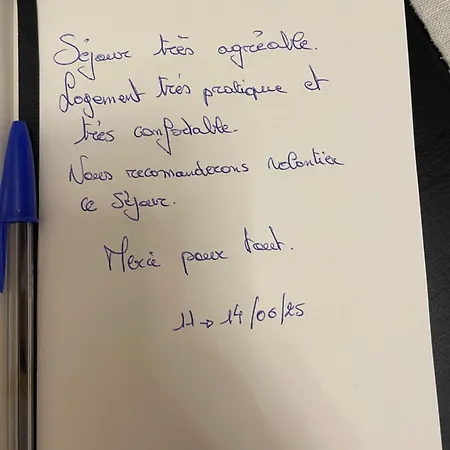 Séjour très agréable.
Logement très pratique et
très confortable.
Nous recomanderons volontier
ce séjour.
Merci pour tout.
11 → 14/06/25